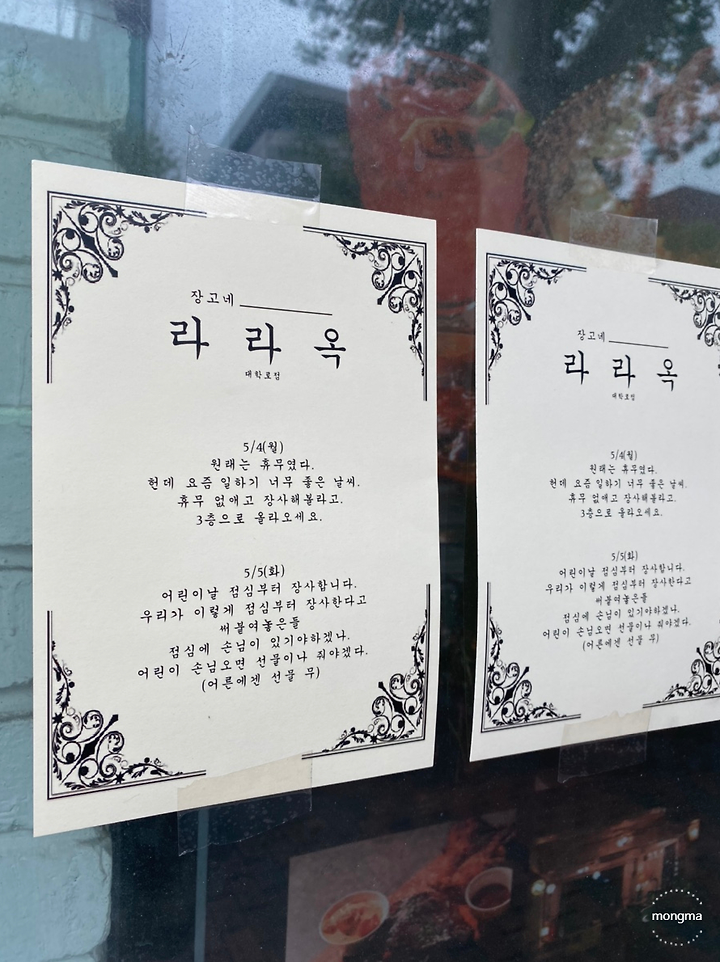 장고네
라 라 옥
대학로점
5/4(월)
원래는 휴무였다.
헌데 요즘 일하기 너무 좋은 날씨.
휴무 없애고 장사해볼라고.
3층으로 올라오세요.
5/5(화)
어린이날 점심부터 장사합니다.
우리가 이렇게 점심부터 장사한다고
써붙여놓은들
점심에 손님이 있기야하겠냐.
어린이 손님오면 선물이나 줘야겠다.
(어른에겐 선물 무)
장고네
라 라 옥
대학로점
5/4(월)
원래는 휴무였다.
헌데 요즘 일하기 너무 좋은 날씨.
휴무 없애고 장사해볼라고.
3층으로 올라오세요.
5/5(화)
어린이날 점심부터 장사합니다.
우리가 이렇게 점심부터 장사한다고
써붙여놓은들
점심에 손님이 있기야하겠냐.
어린이 손님오면 선물이나 줘야겠다.
(어른에겐 선물 무)
mongma